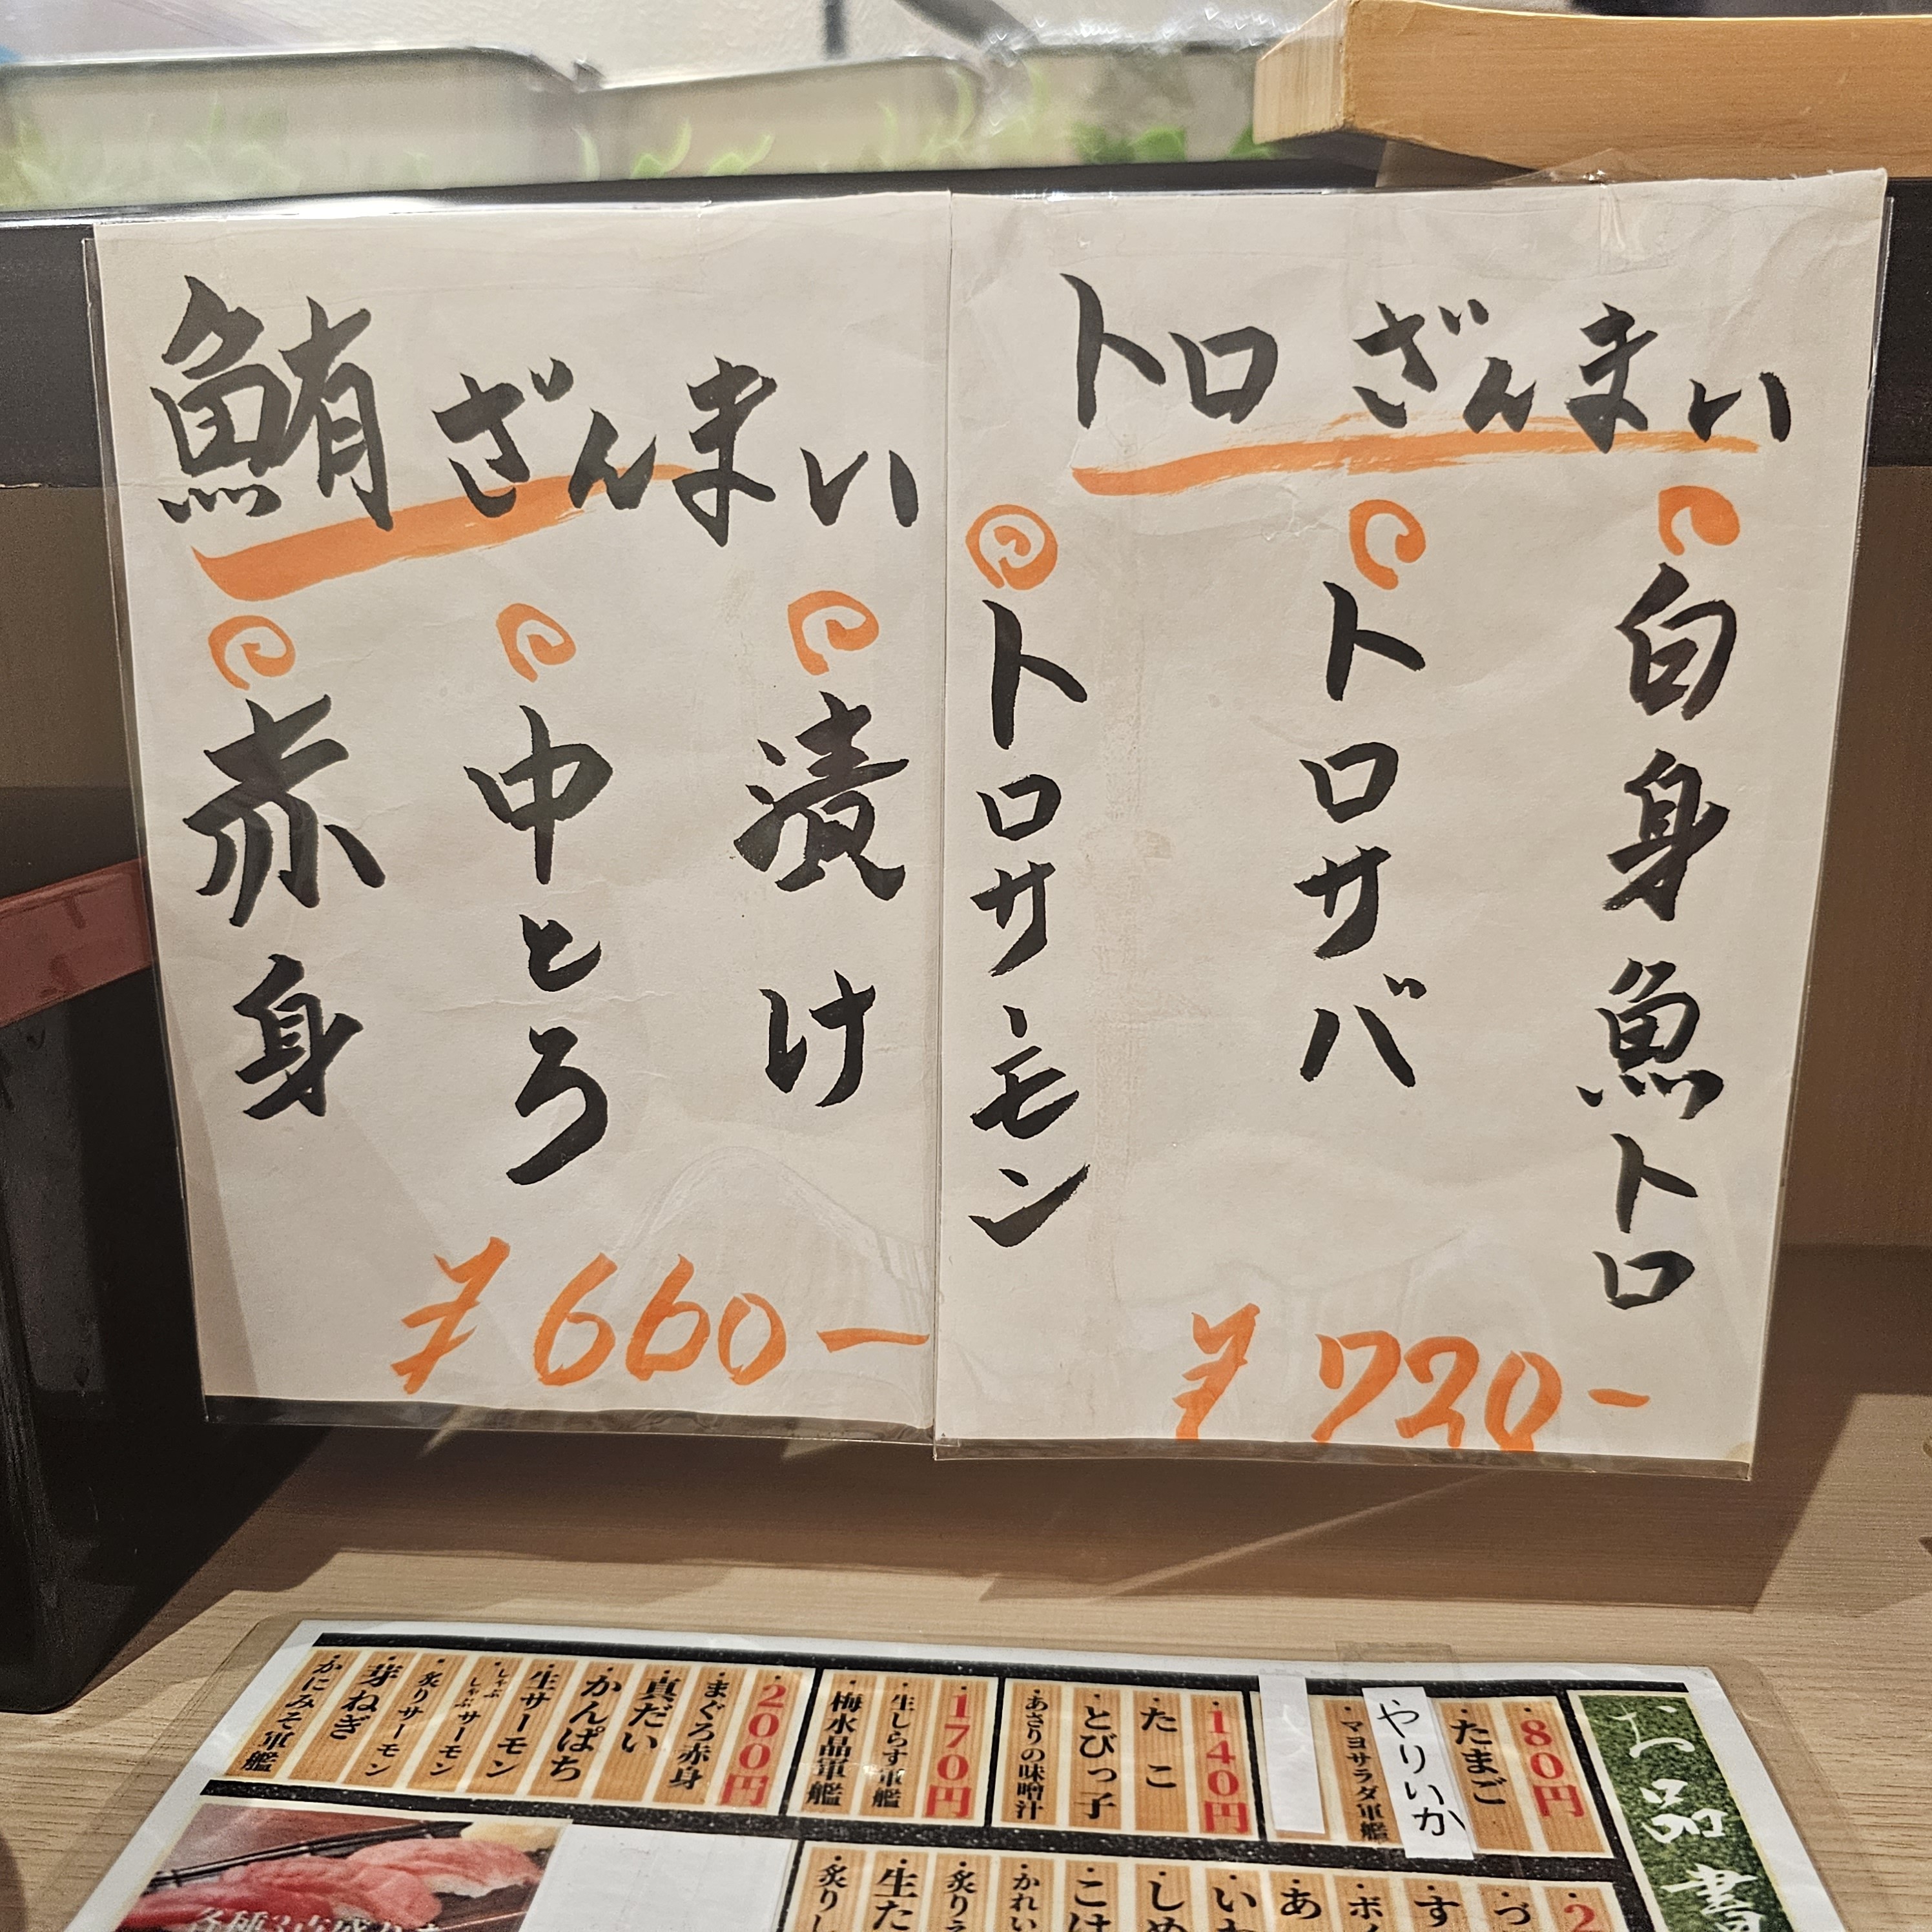 鮪ざんまい
赤身
中とろ
漬け
¥660-
トロざんまい
トロサーモン
トロサバ
白身魚トロ
¥720-
お品書
80円
・たまご
やりいか
・マヨサラダ軍艦
140円
・たこ
・とびっ子
・あさりの味噌汁
170円
・生しらす軍艦
・梅水晶軍艦
200円
・まぐろ赤身
・真だい
・かんぱち
・生サーモン
・しゃぶしゃぶサーモン
・炙りサーモン
・芽ねぎ
・かにみそ軍艦